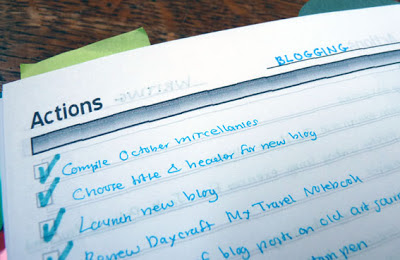 BLOGGING
Actions
Compile October miscellanies
Choose title & header for new blog
Launch new blog
Review Daycraft My Travel Notebook
blog posts on old art
pen